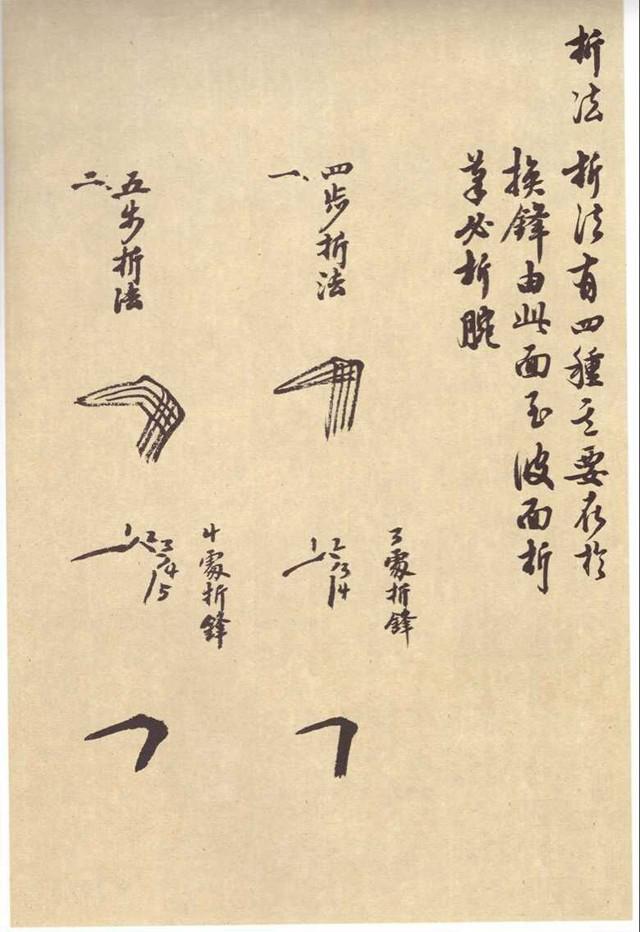 折法 折法有四種其要在於
換鋒由此面至彼面折
筆必折腕
一、四步折法
3處折鋒
1 2 3 4
二、五步折法
4處折鋒
1 2 3 4 5